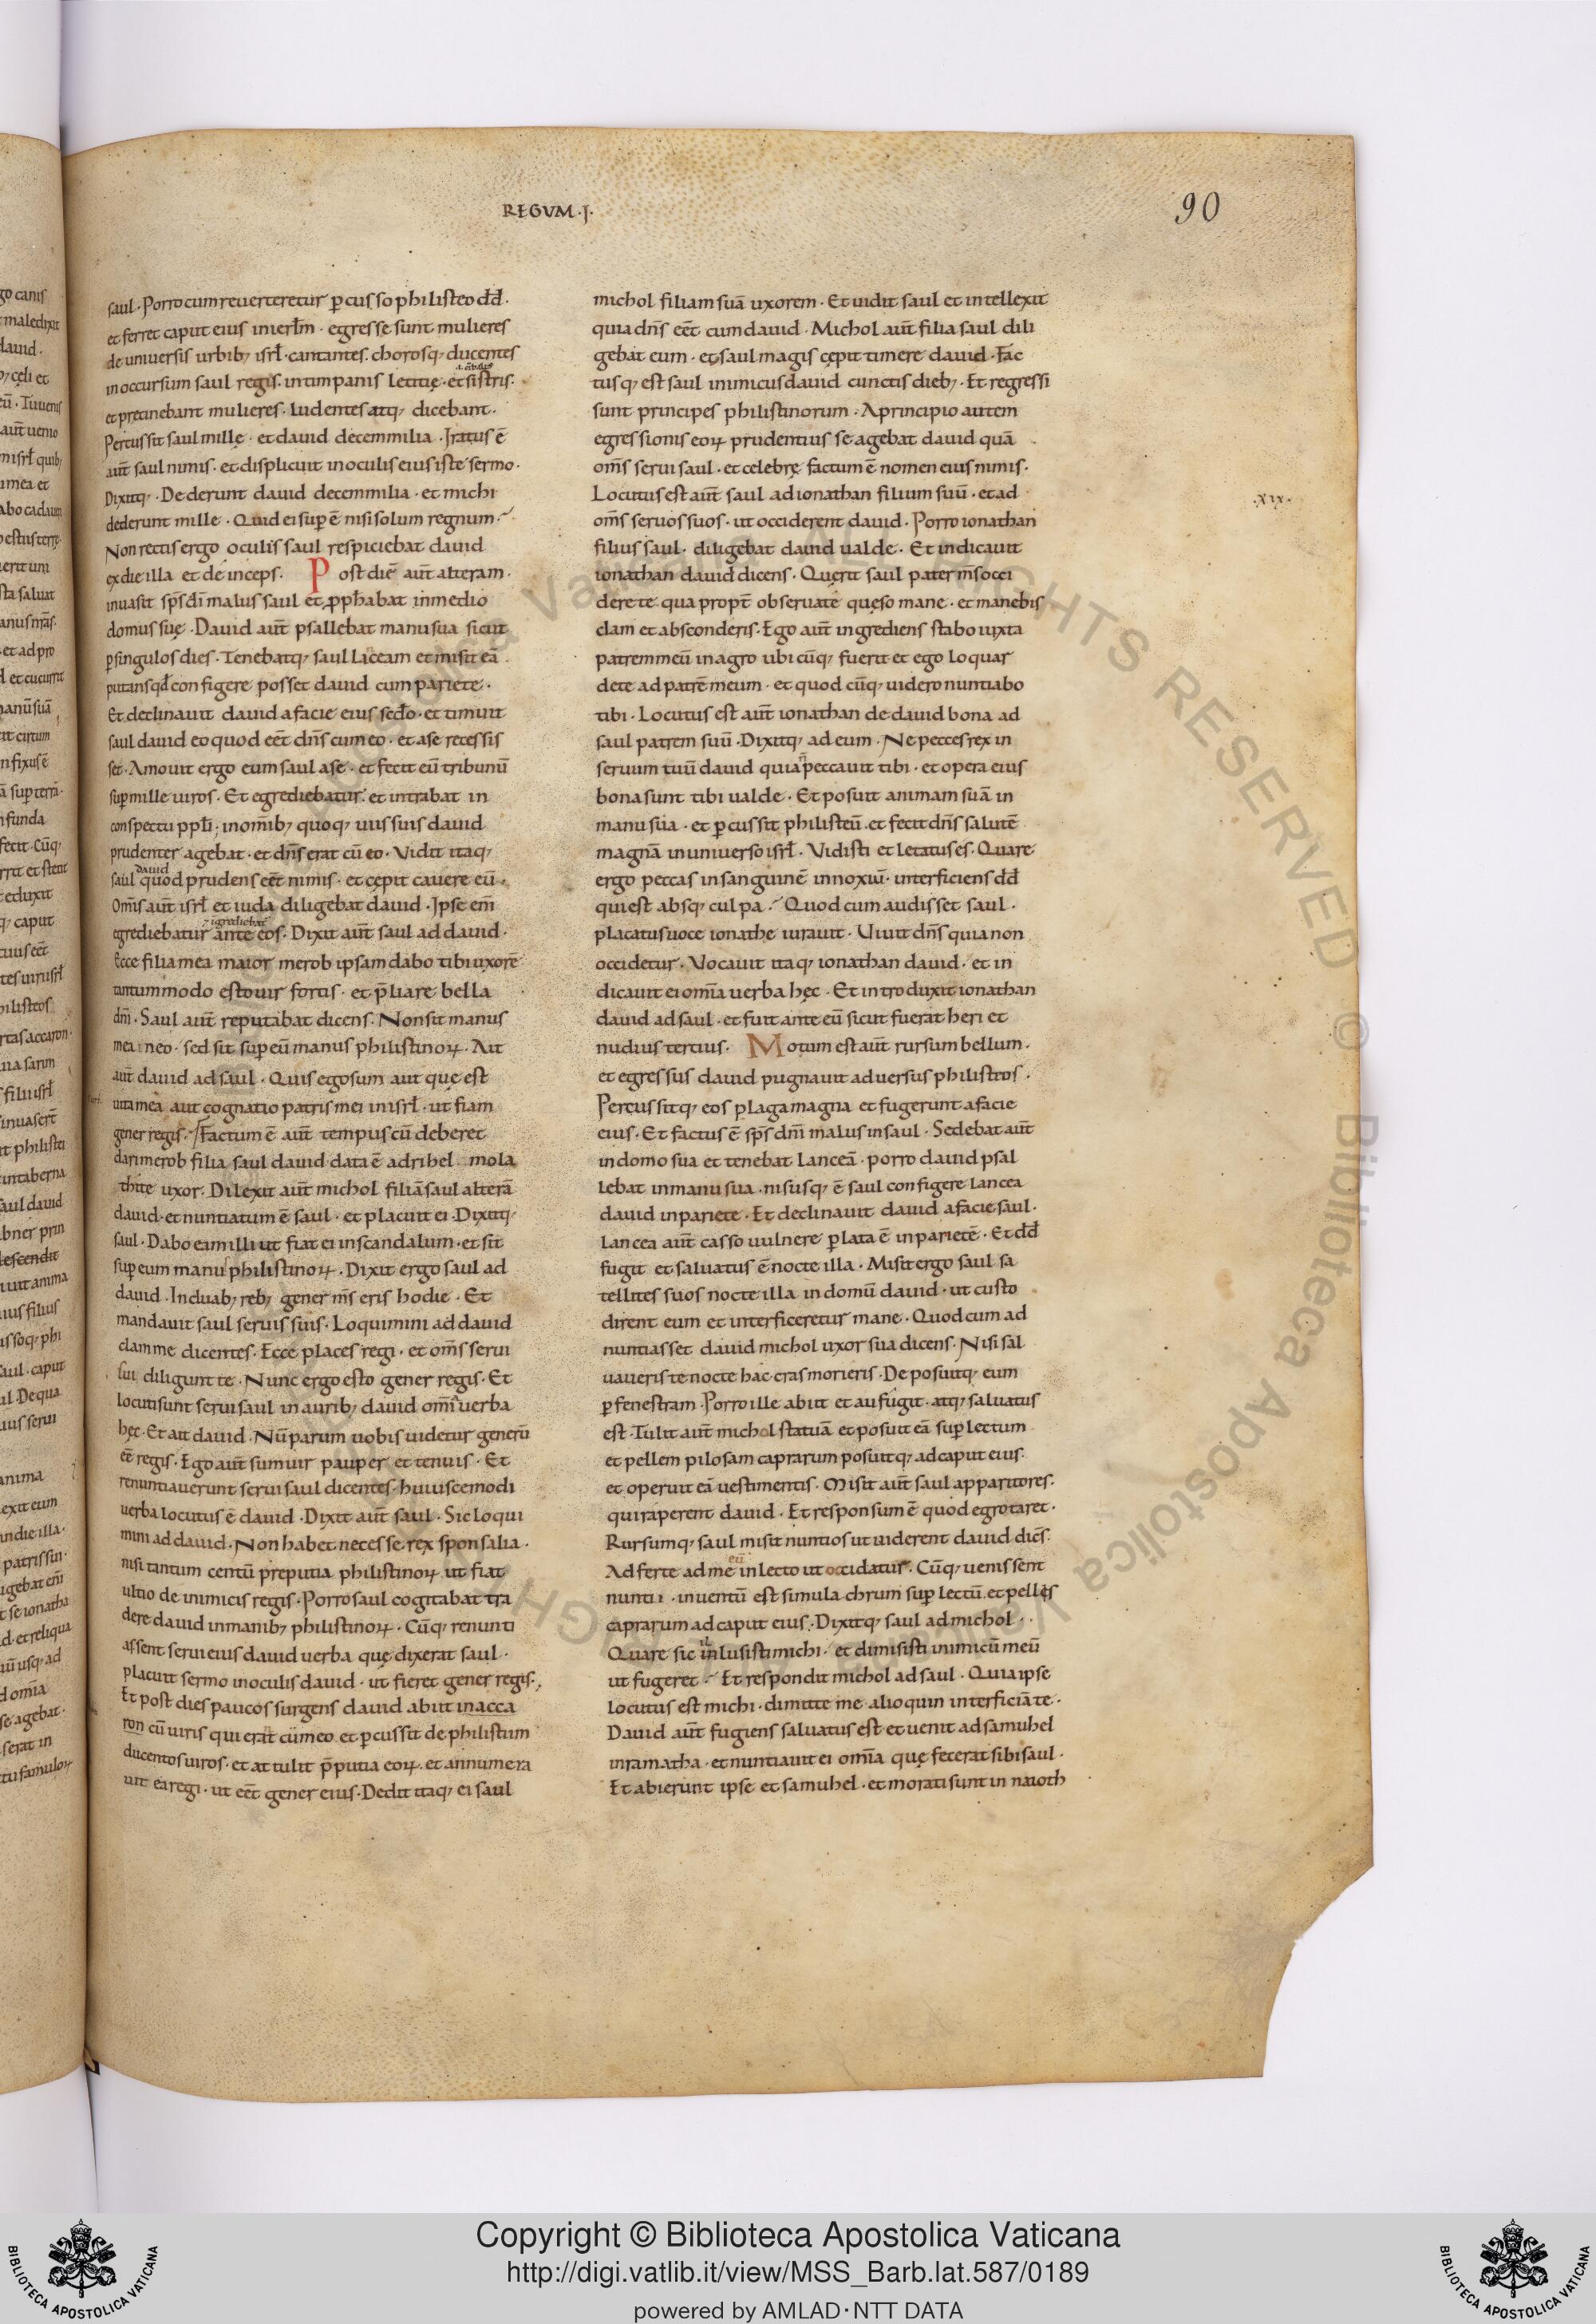 REGVM·I·
90
saul · Porro cum reuerteretur p̄cusso philisteo dd̄ ·
et ferret caput eius inierl̄m · egressę sunt mulieres
de uniuersis urbib; isrl̄ · cantantes · chorosq; ducentes
in occursum saul regis · in timpanis letitię · et sistris ·
et precinebant mulieres · ludentes atq; dicebant ·
Percussit saul mille · et dauid decemmilia · Iratus ē
aut̄ saul nimis · et displicuit in oculis eius iste sermo ·
Dixitq; · Dederunt dauid decemmilia · et michi
dederunt mille · Quid ei sup̄ ē nisi solum regnum ·
Non rectis ergo oculis saul respiciebat dauid
ex die illa et deinceps · Post diē aut̄ alteram ·
inuasit sp̄s dī malus saul et ꝓph̄abat in medio
domus suę · Dauid aut̄ psallebat manu sua sicut
p̄ singulos dies · Tenebatq; saul lāceam et misit eā
putans qd̄ configere posset dauid cum pariete ·
Et declinauit dauid a facie eius sedo · et timuit
saul dauid eo quod eēt dn̄s cum eo · et a se recessis
set · Amouit ergo eum saul a se · et fecit eū tribunū
sup̄ mille uiros · Et egrediebatur et intrabat in
conspectu ppl̄i · in om̄ib; quoq; uiis suis dauid
prudenter agebat · et dn̄s erat cū eo · Vidit itaq;
dauid
saul quod prudens eēt nimis · et cępit cauere eū ·
Om̄is aut̄ isrl̄ et iuda diligebat dauid · Ipse em̄
⁊ igrediebat̄
egrediebatur ante eos · Dixit aut̄ saul ad dauid ·
Ecce filia mea maior merob ipsam dabo tibi uxorē
tantummodo esto uir fortis · et p̄liare bella
dnī · Saul aut̄ reputabat dicens · Non sit manus
mea in eo · sed sit sup̄ eū manus philistinoꝝ · Ait
aut̄ dauid ad saul · Quis ego sum aut quę est
uita mea aut cognatio patris mei in isrl̄ · ut fiam
gener regis · Factum ē aut̄ tempus cū deberet
dari merob filia saul dauid data ē adrihel mola
thite uxor · Dilexit aut̄ michol filiā saul alterā
dauid · et nuntiatum ē saul · et placuit ei · Dixitq;
saul · Dabo eam illi ut fiat ei in scandalum · et sit
sup̄ eum manus philistinoꝝ · Dixit ergo saul ad
dauid · In duab; reb; gener m̄s eris hodie · Et
mandauit saul seruis suis · Loquimini ad dauid
clam me dicentes · Ecce places regi · et om̄s serui
sui diligunt te · Nunc ergo esto gener regis · Et
locuti sunt serui saul in aurib; dauid om̄ia uerba
hęc · Et ait dauid · Nū parum uobis uidetur generū
eē regis · Ego aut̄ sum uir pauper et tenuis · Et
renuntiauerunt serui saul dicentes · huiuscemodi
uerba locutus ē dauid · Dixit aut̄ saul · Sic loqui
mini ad dauid · Non habet necesse rex sponsalia ·
nisi tantum centū preputia philistinoꝝ ut fiat
ultio de inimicis regis · Porro saul cogitabat tra
dere dauid in manib; philistinoꝝ · Cūq; renunti
assent serui eius dauid uerba quę dixerat saul ·
placuit sermo in oculis dauid · ut fieret gener regis ·
Et post dies paucos surgens dauid abiit in acca
ron cū uiris qui erāt cū eo · et p̄cussit de philistiim
ducentos uiros · et attulit p̄putia eoꝝ · et annumera
uit ea regi · ut eēt gener eius · Dedit itaq; ei saul
michol filiam suā uxorem · Et uidit saul et intellexit
quia dn̄s eēt cum dauid · Michol aut̄ filia saul dili
gebat eum · et saul magis cępit timere dauid · Fac
tusq; est saul inimicus dauid cunctis dieb; · Et regressi
sunt principes philistinorum · A principio autem
egressionis eoꝝ prudentius se agebat dauid quā
om̄s serui saul · et celebrę factum ē nomen eius nimis ·
·XIX·
Locutus est aut̄ saul ad ionathan filium suū · et ad
om̄s seruos suos · ut occiderent dauid · Porro ionathan
filius saul · diligebat dauid ualde · Et indicauit
ionathan dauid dicens · Querit saul pater m̄s occi
dere te · qua propt̄ obserua te quęso mane · et manebis
clam et absconderis · Ego aut̄ ingrediens stabo iuxta
patrem meū in agro ubicūq; fuerit et ego loquar
de te ad patrē meum · et quodcūq; uidero nuntiabo
tibi · Locutus est aut̄ ionathan de dauid bona ad
saul patrem suū · Dixitq; ad eum · Ne pecces rex in
seruum tuū dauid quia n̄ peccauit tibi · et opera eius
bona sunt tibi ualde · Et posuit animam suā in
manu sua · et p̄cussit philisteū · et fecit dn̄s salutē
magnā in uniuerso isrl̄ · Vidisti et letatus es · Quare
ergo peccas in sanguinē innoxiū · interficiens dd̄
qui est absq; culpa · Quod cum audisset saul ·
placatus uoce ionathe iurauit · Viuit dn̄s quia non
occidetur · Vocauit itaq; ionathan dauid · et in
dicauit ei om̄ia uerba hęc · Et introduxit ionathan
dauid ad saul · et fuit ante eū sicut fuerat heri et
nudius tertius · Motum est aut̄ rursum bellum ·
et egressus dauid pugnauit aduersus philisteos ·
Percussitq; eos plaga magna et fugerunt a facie
eius · Et factus ē sp̄s dnī malus in saul · Sedebat aut̄
in domo sua et tenebat lanceā · porro dauid psal
lebat in manu sua · nisusq; ē saul configere lancea
dauid in pariete · Et declinauit dauid a facie saul ·
Lancea aut̄ casso uulnere p̄lata ē in parietē · Et dd̄
fugit et saluatus ē nocte illa · Misit ergo saul sa
tellites suos nocte illa in domū dauid · ut custo
dirent eum et interficeretur mane · Quod cum ad
nuntiasset dauid michol uxor sua dicens · Nisi sal
uaueris te nocte hac cras morieris · Deposuitq; eum
p̄ fenestram · Porro ille abiit et aufugit · atq; saluatus
est · Tulit aut̄ michol statuā et posuit eā sup̄ lectum
et pellem pilosam caprarum posuitq; ad caput eius ·
et operuit eā uestimentis · Misit aut̄ saul apparitores ·
qui raperent dauid · Et responsum ē quod egrotaret ·
Rursumq; saul misit nuntios ut uiderent dauid dicēs ·
eū
Adferte ad me in lecto ut occidatur · Cūq; uenissent
nuntii · inuentū est simulachrum sup̄ lectū · et pelles
caprarum ad caput eius · Dixitq; saul ad michol ·
Quare sic inlusisti michi · et dimisisti inimicū meū
ut fugeret · Et respondit michol ad saul · Quia ipse
locutus est michi · dimitte me alioquin interficiā te ·
Dauid aut̄ fugiens saluatus est · et uenit ad samuhel
in ramatha · et nuntiauit ei om̄ia quę fecerat sibi saul ·
Et abierunt ipse et samuhel · et morati sunt in naioth
Copyright © Biblioteca Apostolica Vaticana
http://digi.vatlib.it/view/MSS_Barb.lat.587/0189
powered by AMLAD·NTT DATA
BIBLIOTECA APOSTOLICA VATICANA
BIBLIOTECA APOSTOLICA VATICANA